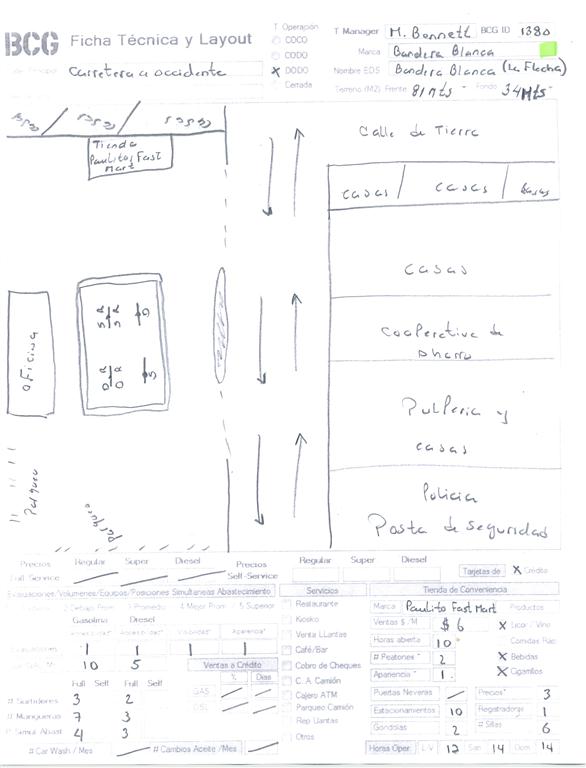 BCG Ficha Técnica y Layout
T Operación
COCO
CODO
X DODO
Cerrada
T Manager M. Bennett BCG ID 1380
Marca Bandera Blanca
Nombre EDS Bandera Blanca (La Flecha)
Terreno (M2) Frente 81 mts Fondo 34 Mts
Carretera a occidente
casas / casas / casas
Tienda
Paulitos Fast
Mart
Calle de Tierra
casas / casas / casas
casas
Cooperativa de
Ahorro
Pulperia y
casas
Policia
Posta de seguridad
oficina
Parqueo
Parqueo
Precios Regular Super Diesel Precios Regular Super Diesel
Full Service Self-Service
Tarjetas de X Crédito
Evaluaciones/Volumenes/Equipos/Posiciones Simultaneas Abastecimiento
2 Debajo Prom 3 Promedio 4 Mejor Prom / 5 Superior
Gasolina Diesel
Accesibilidad* Accesibilidad* Visibilidad* Apariencia*
1 1 1 1
10 5
Ventas a Crédito
% Dias
GAS
DSL
Full Self Full Self
# Surtidores 3 2
# Mangueras 7 3
# Simul Abast 4 3
# Car Wash / Mes # Cambios Aceite /Mes
Servicios
Restaurante
Kiosko
Venta Llantas
Café/Bar
Cobro de Cheques
C. A. Camión
Cajero ATM
Parqueo Camión
Rep Llantas
Otros
Tienda de Conveniencia
Marca Paulito Fast Mart Productos
Ventas $ / M $ 6 X Licor / Vino
Horas abierta 10 Comidas Ráp
# Peatones* 2 X Bebidas
Apariencia* 1 X Cigarrillos
Puertas Neveras Precios* 3
Estacionamientos 10 Registradoras 1
Gondolas 2 # Sillas 6
Horas Oper. L-V 12 Sab 14 Dom 14